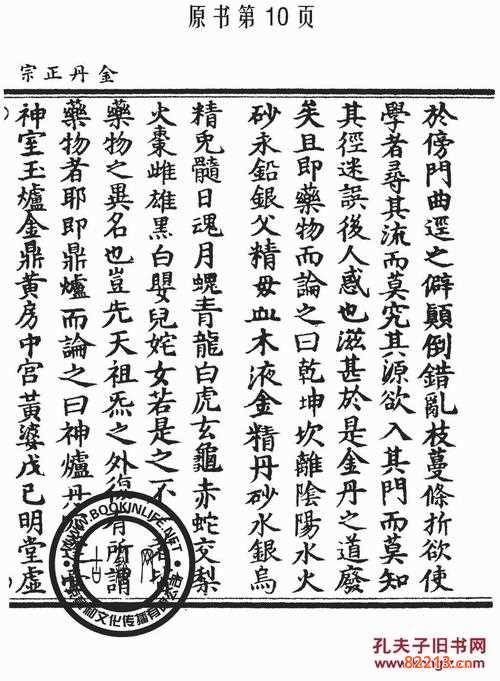 原书第10页
金丹正宗
於傍門曲逕之僻顛倒錯亂枝蔓條折欲使
學者尋其流而莫究其源欲入其門而莫知
其徑迷誤後人感也滋甚於是金丹之道廢
矣且即藥物而論之曰乾坤坎離陰陽水火
砂永鉛銀父精母血木液金精丹砂水銀烏
精兔髓日魂月魄青龍白虎玄龜赤蛇交梨
火棗雌雄黑白嬰兒姹女若是之不
藥物之異名也豈先天祖炁之外復有所謂
藥物者耶即鼎爐而論之曰神爐丹
神室玉爐金鼎黃房中宮黃婆戊己明堂虛
WWW.BOOKINLIFE.NET
文化传播有限公司
孔夫子旧书网
82213.cn